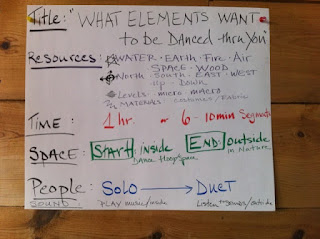 Title: "WHAT ELEMENTS WANT
to be DANCED thru You"
Resources: WATER · EARTH · Fire · Air
SPACE · WOOD
North · South · EAST · WEST
Up · Down
Levels · micro macro
MATERIALS costumes/Fabric
TIME: 1 hr. or 6 - 10min Segments
SPACE: START: inside END: outside
Dance floor space in Nature
People: SOLO → DUET
SOUND PLAY music/inside Listen to sounds/outside